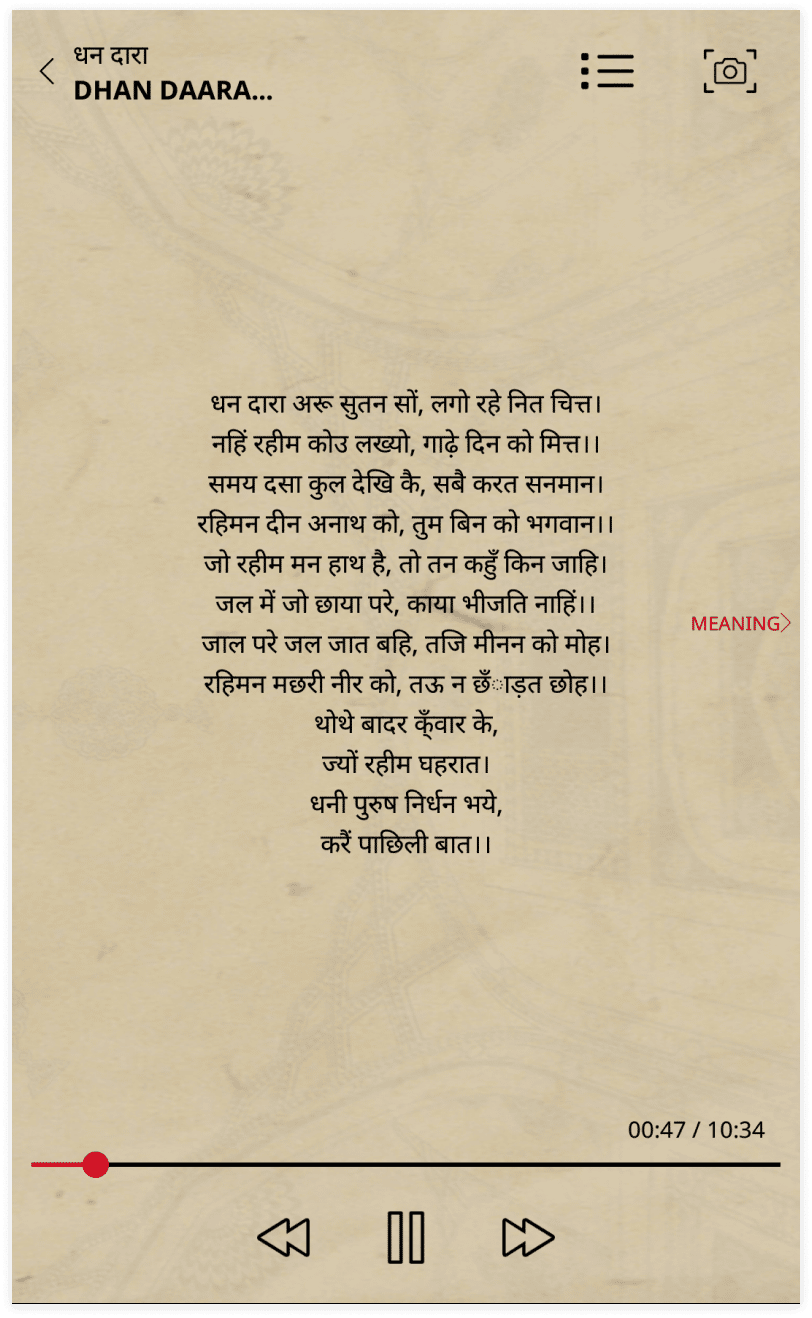 धन दारा
DHAN DAARA...
धन दारा अरू सुतन सों, लगो रहे नित चित्त।
नहिं रहीम कोउ लख्यो, गाढ़े दिन को मित्त।।
समय दसा कुल देखि कै, सबै करत सनमान।
रहिमन दीन अनाथ को, तुम बिन को भगवान।।
जो रहीम मन हाथ है, तो तन कहुँ किन जाहि।
जल में जो छाया परे, काया भीजति नाहिं।।
MEANING
जाल परे जल जात बहि, तजि मीनन को मोह।
रहिमन मछरी नीर को, तऊ न छँाड़त छोह।।
थोथे बादर क्ँवार के,
ज्यों रहीम घहरात।
धनी पुरुष निर्धन भये,
करैं पाछिली बात।।
00:47 / 10:34